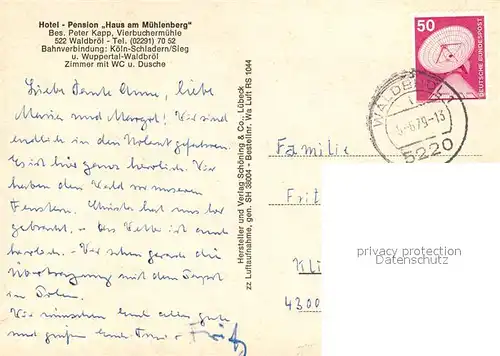 Hotel - Pension „Haus am Mühlenberg"
Bes. Peter Kapp, Vierbuchermühle
522 Waldbröl - Tel. (02291) 70 52
Bahnverbindung: Köln-Schladern/Sieg
u. Wuppertal-Waldbröl
Zimmer mit WC u. Dusche
Liebe Tante Anne, liebe
Maria und Margot! Wir sind
endlich in den Urlaub gefahren.
Es ist hier ganz herrlich. Wir
haben den Wald vor unseren
Fenstern. hat uns her
gebracht. - Das Wetter ist auch
herrlich. - Wir sehen gerade die
Übertragung mit dem Papst
in Polen.
Wir wünschen Euch alles gute
und grüßen Fritz
Hersteller und Verlag Schöning & Co., Lübeck
zz Luftaufnahme, gen. SH 38004 - Bestellnr. Wa Luft RS 1044
50
DEUTSCHE BUNDESPOST
WALDBRÖL 1
-6.79-13
5220
Familie
Frit
Kl
4300
privacy protection
Datenschutz